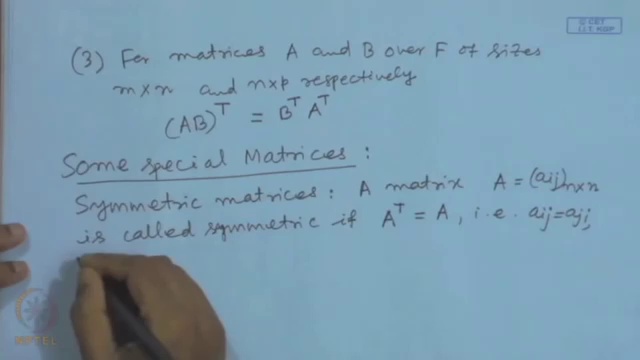 © CET
I.I.T. KGP
(3) For matrices A and B over F of sizes
m×n and n×p respectively
(AB)ᵀ = Bᵀ Aᵀ
Some special Matrices :
Symmetric matrices : A matrix A = (aij)n×n
is called symmetric if Aᵀ = A, i.e. aij = aji,
NPTEL